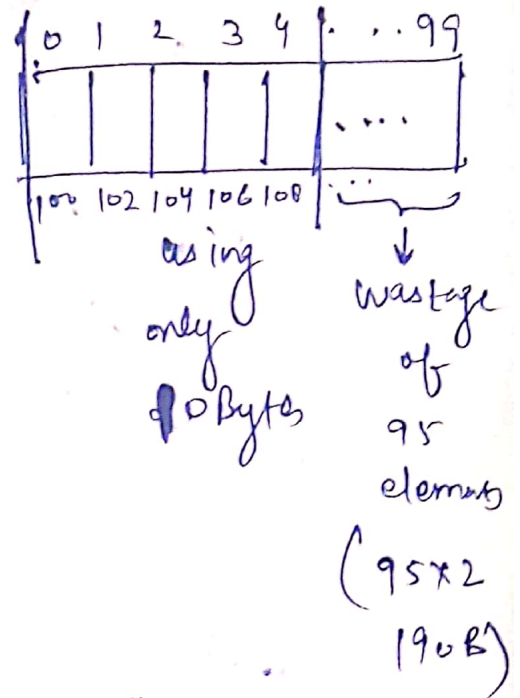 0 1 2. 3 4 . . . . 99
....
100 102 104 106 108 ...
using
only
10 Bytes
wastage
of
95
elements
(95×2
190B)